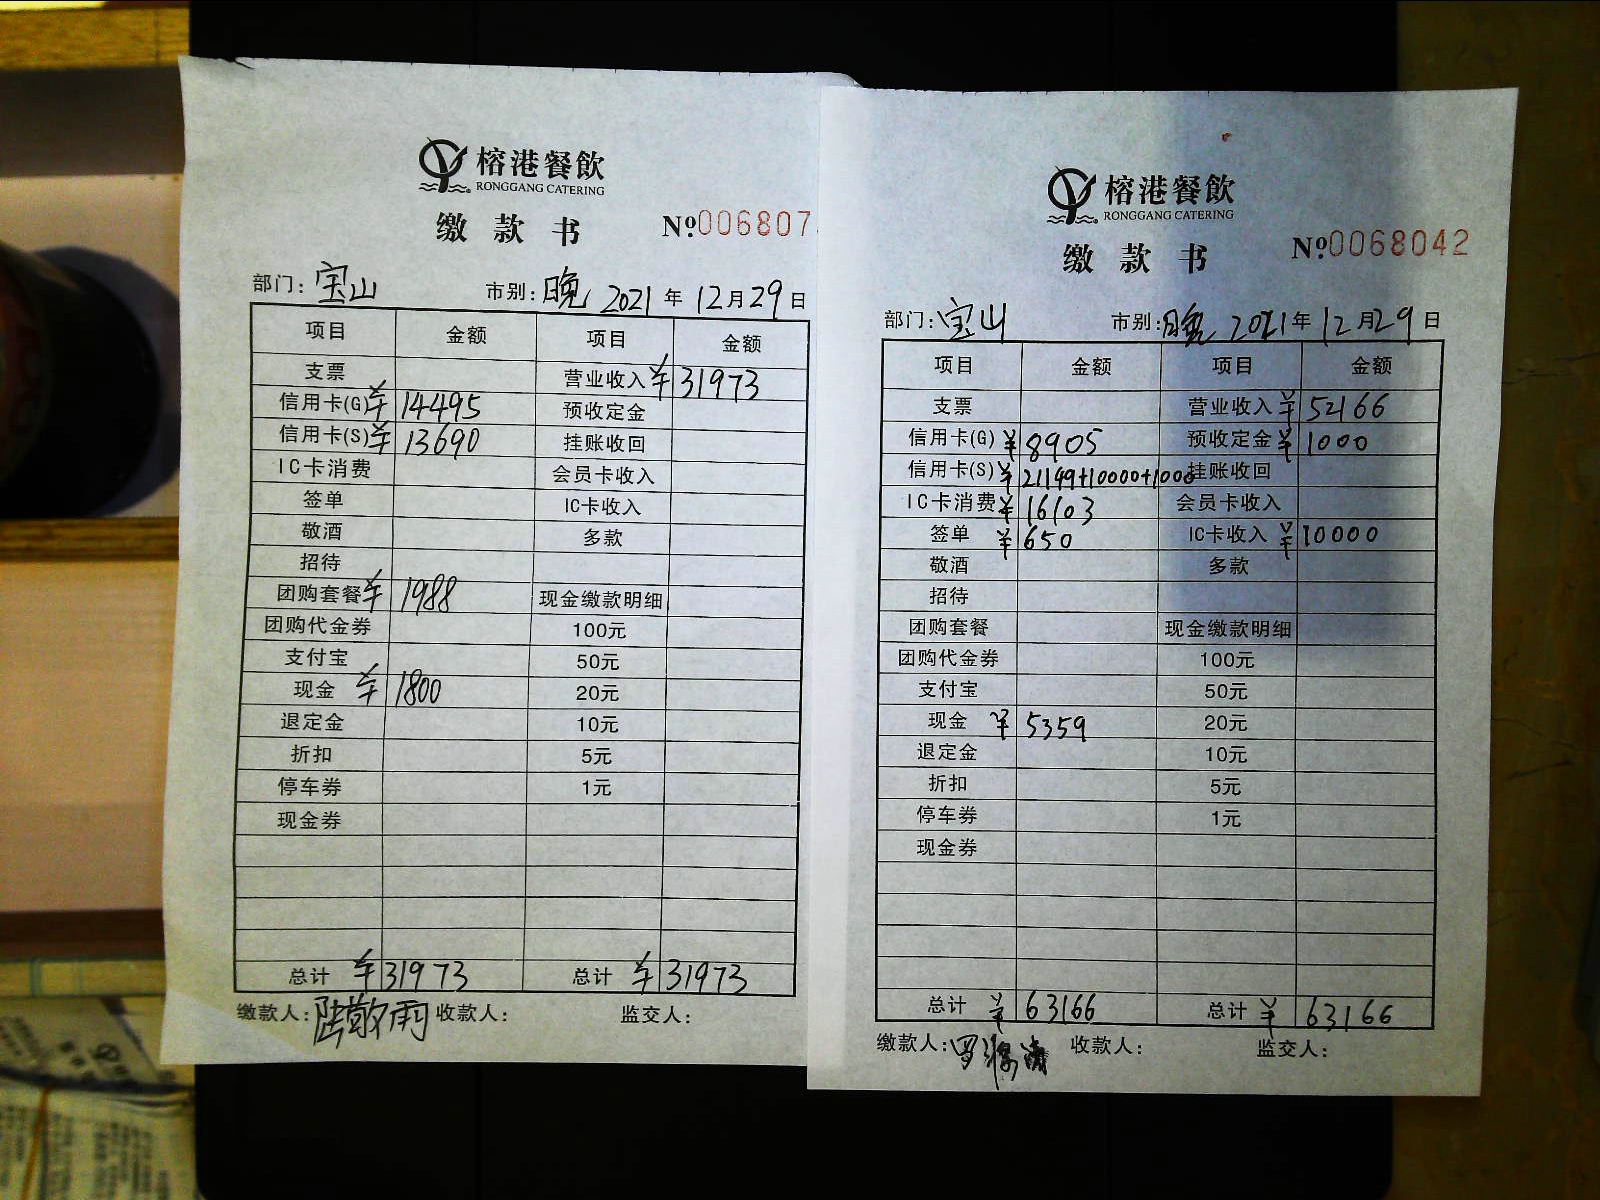 榕港餐飲
RONGGANG CATERING
缴款书 №006807
部门: 宝山 市别: 晚 2021年12月29日
项目 金额 项目 金额
支票 营业收入 ¥31973
信用卡(G) ¥14495 预收定金
信用卡(S) ¥13690 挂账收回
IC卡消费 会员卡收入
签单 IC卡收入
敬酒 多款
招待
团购套餐 ¥1988 现金缴款明细
团购代金券 100元
支付宝 50元
现金 ¥1800 20元
退定金 10元
折扣 5元
停车券 1元
现金券
总计 ¥31973 总计 ¥31973
缴款人: 陆敬雨 收款人: 监交人:
榕港餐飲
RONGGANG CATERING
缴款书 №0068042
部门: 宝山 市别: 晚 2021年12月29日
项目 金额 项目 金额
支票 营业收入 ¥52166
信用卡(G) ¥8905 预收定金 ¥1000
信用卡(S) ¥21149+10000+1000 挂账收回
IC卡消费 ¥16103 会员卡收入
签单 ¥650 IC卡收入 ¥10000
敬酒 多款
招待
团购套餐 现金缴款明细
团购代金券 100元
支付宝 50元
现金 ¥5359 20元
退定金 10元
折扣 5元
停车券 1元
现金券
总计 ¥63166 总计 ¥63166
缴款人: 收款人: 监交人: